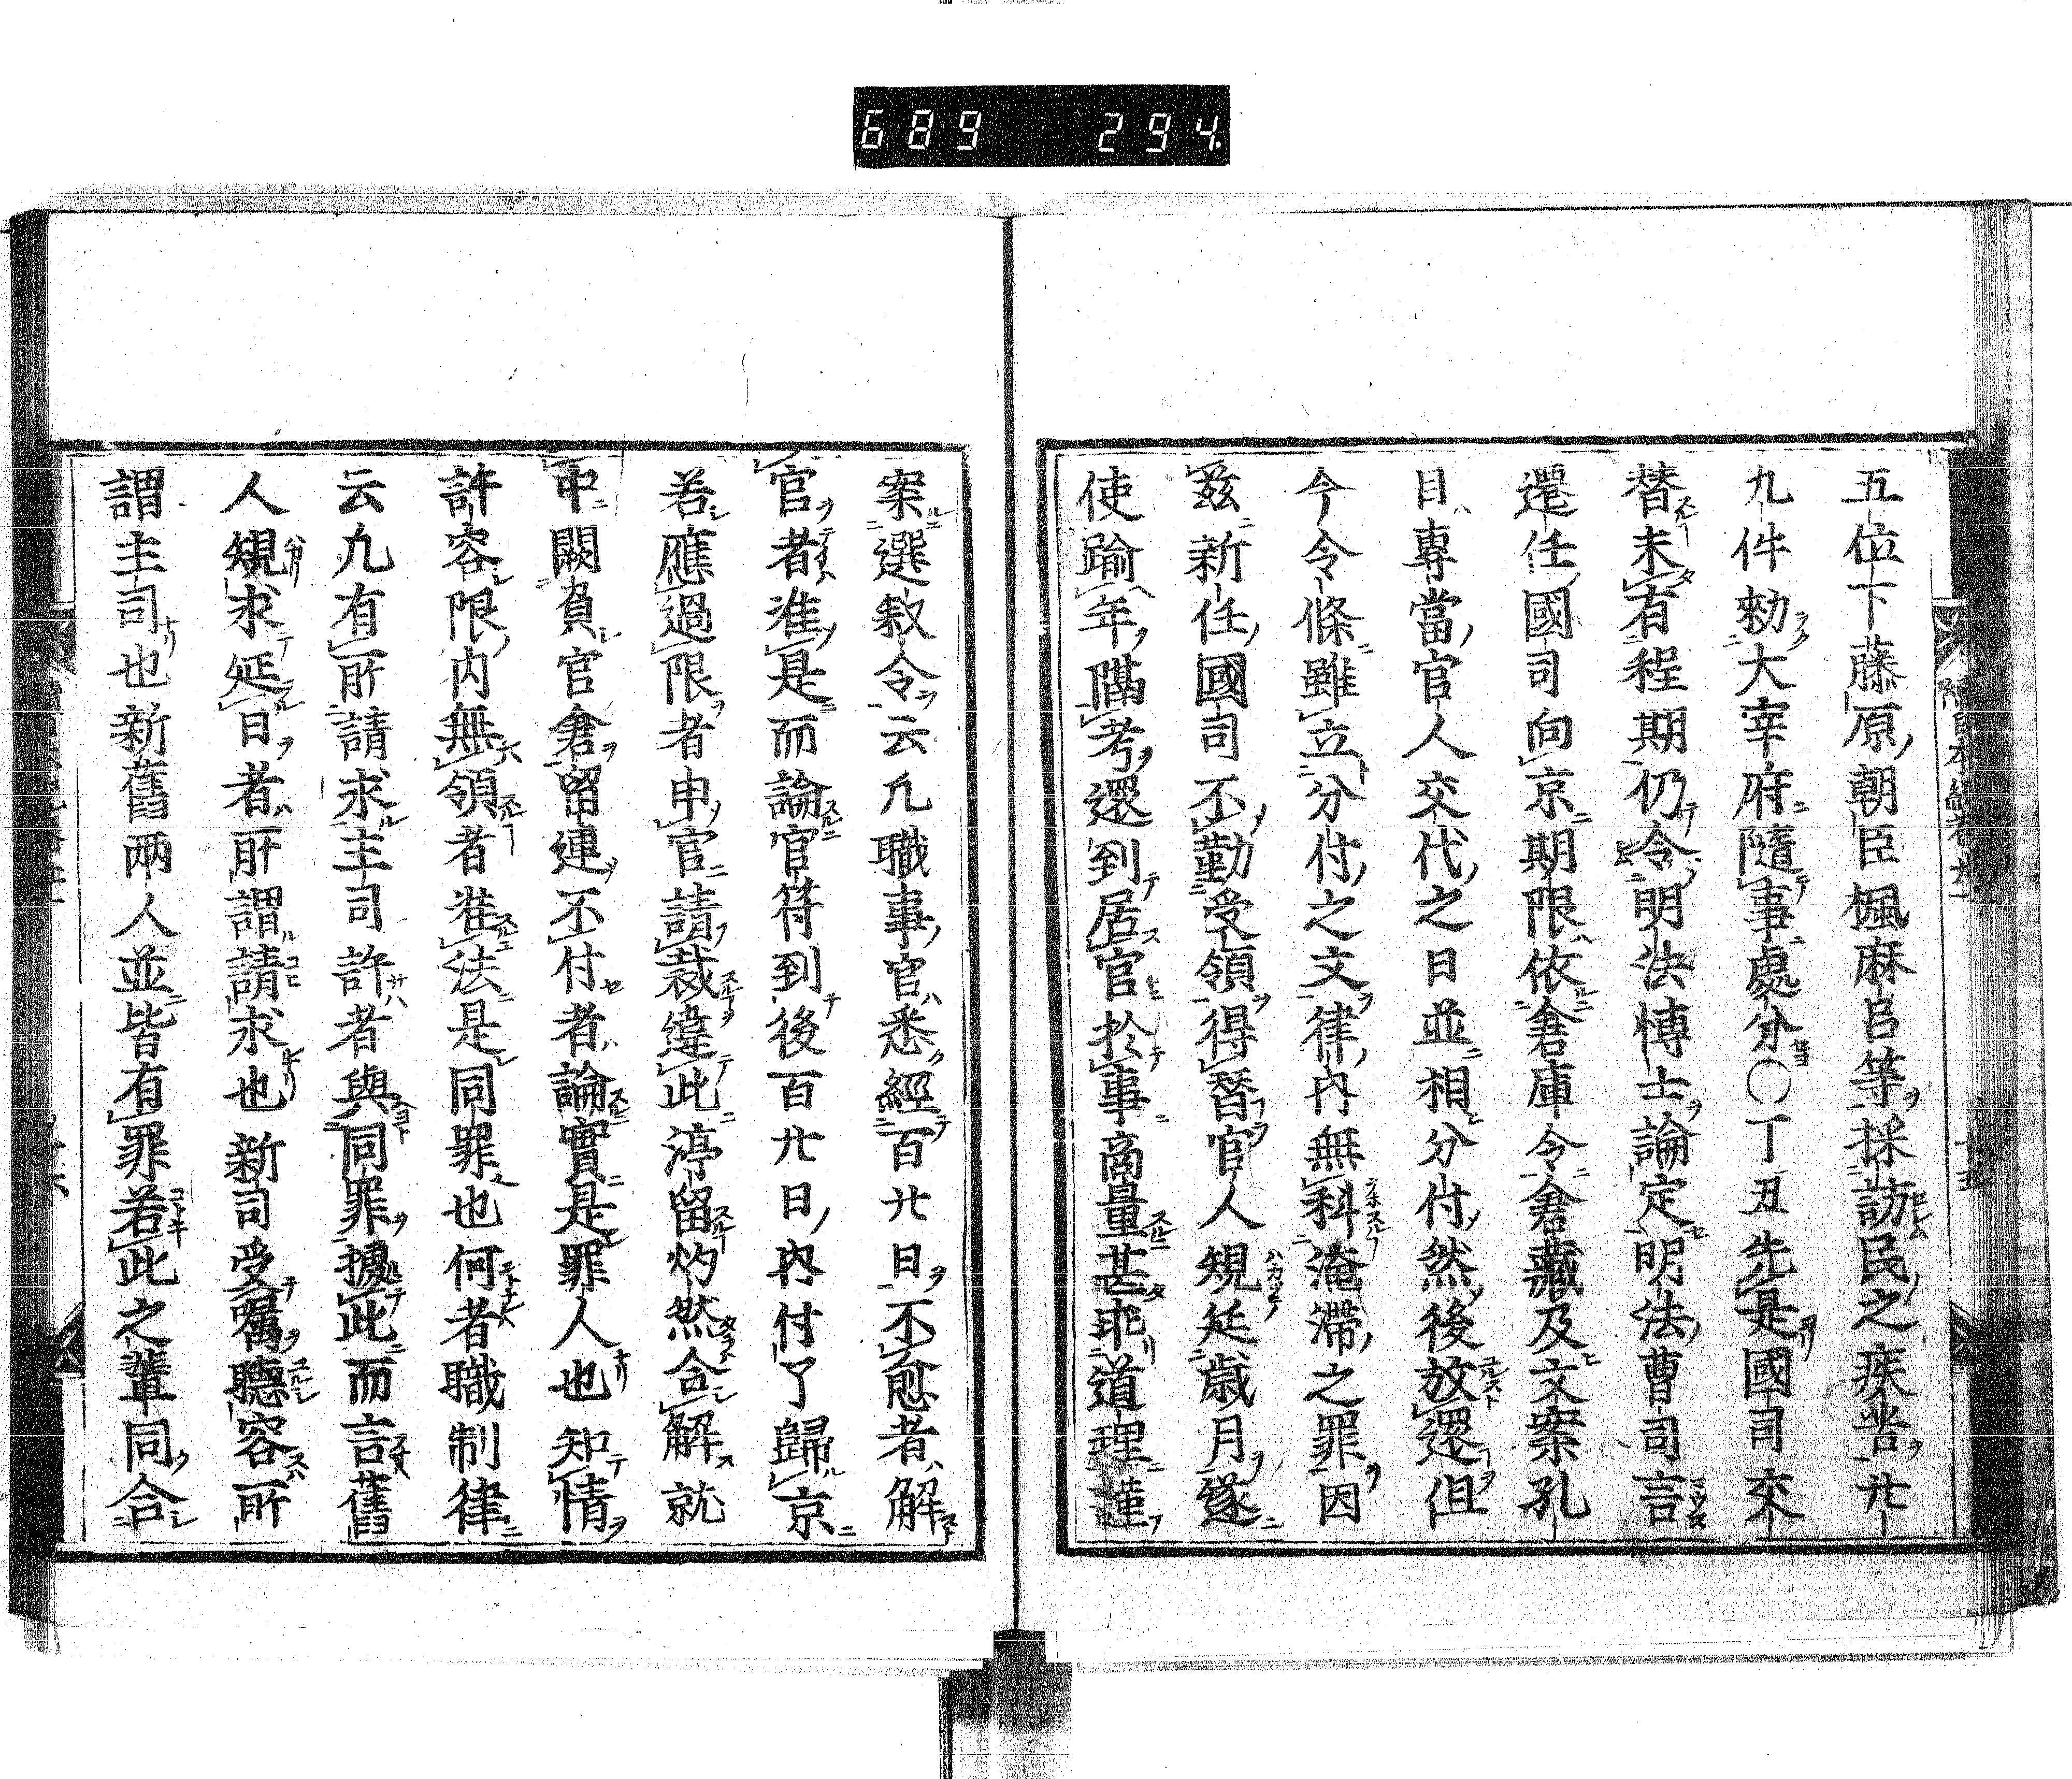 689 294
五位下藤原朝臣楓麻呂等採訪民之疾苦廿
九件勅大宰府隨事處分〇丁丑先是國司交
替未有程期仍令明法博士論定明法曹司言
遷任國司向京期限依倉庫令倉藏及文案孔
目專當官人交代之日並相分付然後放還但
今令條雖立分付之文律内無科淹滯之罪因
茲新任國司不勤受領得替官人規延歳月遂
使踰年隔考還到居官於事商量甚乖道理謹
案選敍令云凡職事官患經百廿日不愈者解
官者准是而論官符到後百廿日内付了歸京
若應過限者申官請裁違此渟留灼然合解就
中闕負官倉留連不付者論實是罪人也知情
許容限内無領者准法是同罪也何者職制律
云凡有所請求主司許者與同罪據此而言舊
人規求延日者所謂請求也新司受囑聽容所
謂主司也新舊兩人並皆有罪若此之輩同合